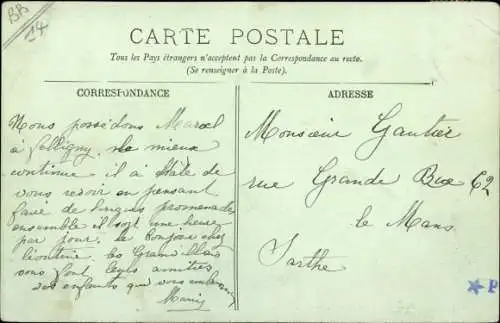 BB
14
CARTE POSTALE
Tous les Pays étrangers n'acceptent pas la Correspondance au recto.
(Se renseigner à la Poste).
CORRESPONDANCE
Nous possédons Marcel
à Golligny. le mieux
continue il a hâte de
vous revoir en pensant
faire de longues promenades
ensemble il sort une heure
par jour. le bonjour chez
Léontine. les
vous font leurs amitiés
des enfants qui vous embrassent
ADRESSE
Monsieur Gautier
rue Grande Rue 62
le Mans
Sarthe